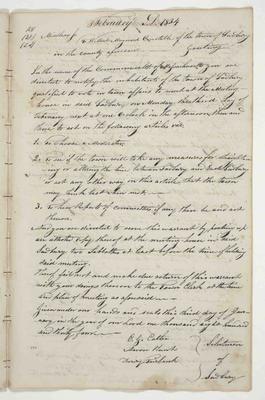 February 3d. 1834
Middlesex ss
of the town of Sudbury
in the county aforesaid Greeting
In the name of the Commonwealth of Massachusetts you are
directed to notify the inhabitants of the Town of Sudbury
qualified to vote in town affairs to meet at the Meeting
house in said Sudbury, on Monday the third day of
February next at one O Clock in the afternoon then and
there to act on the following articles viz
1. to Choose a Moderator
2. to see if the town will take any measures for
or altering the line between Sudbury and East Sudbury
or act any other way in this article that the town
may think best when met
3. to hear Reports of committees if any there be and act
thereon
And you are directed to serve this warrant by posting up
an attested copy thereof at the meeting house in said
Sudbury two Sabbaths at least before the time of holding
said meeting.
Hereof fail not and make due return of this warrant
with your doings thereon to the Town Clerk at the time
and place of meeting as aforesaid
Given under our hands and seals this third day of January
in the year of our Lord one thousand eight hundred
and thirty four
Selectmen
of
Sudbury